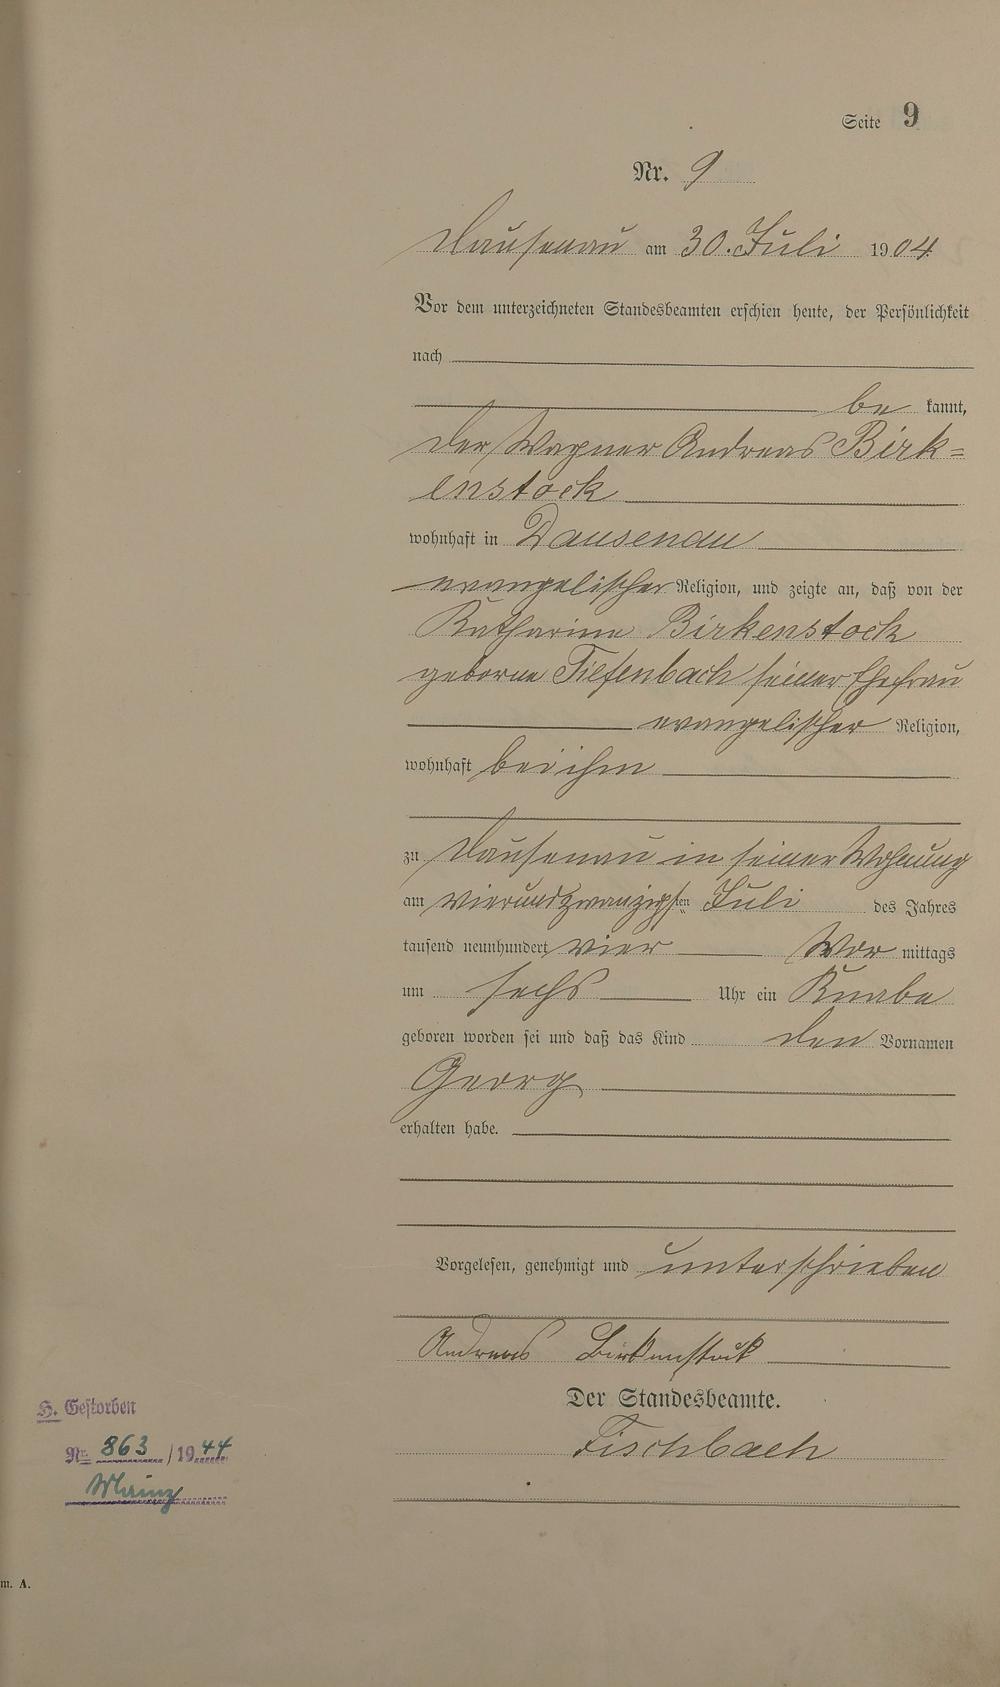 Seite 9
Nr. 9
Dausenau am 30. Juli 1904
Vor dem unterzeichneten Standesbeamten erschien heute, der Persönlichkeit
nach
be kannt,
der Wagner Andreas Birk=
enstock
wohnhaft in Dausenau
evangelischer Religion, und zeigte an, daß von der
Katharina Birkenstock
geborne Tiefenbach seiner Ehefrau
evangelischer Religion,
wohnhaft bei ihm
zu Dausenau in seiner Wohnung
am vierundzwanzigsten Juli des Jahres
tausend neunhundert vier Vor mittags
um sechs Uhr ein Knabe
geboren worden sei und daß das Kind den Vornamen
Georg
erhalten habe.
Vorgelesen, genehmigt und unterschrieben
Andreas Birkenstock
Der Standesbeamte.
Fischbach
H. Gestorben
Nr. 863 / 1944
Mainz
m. A.